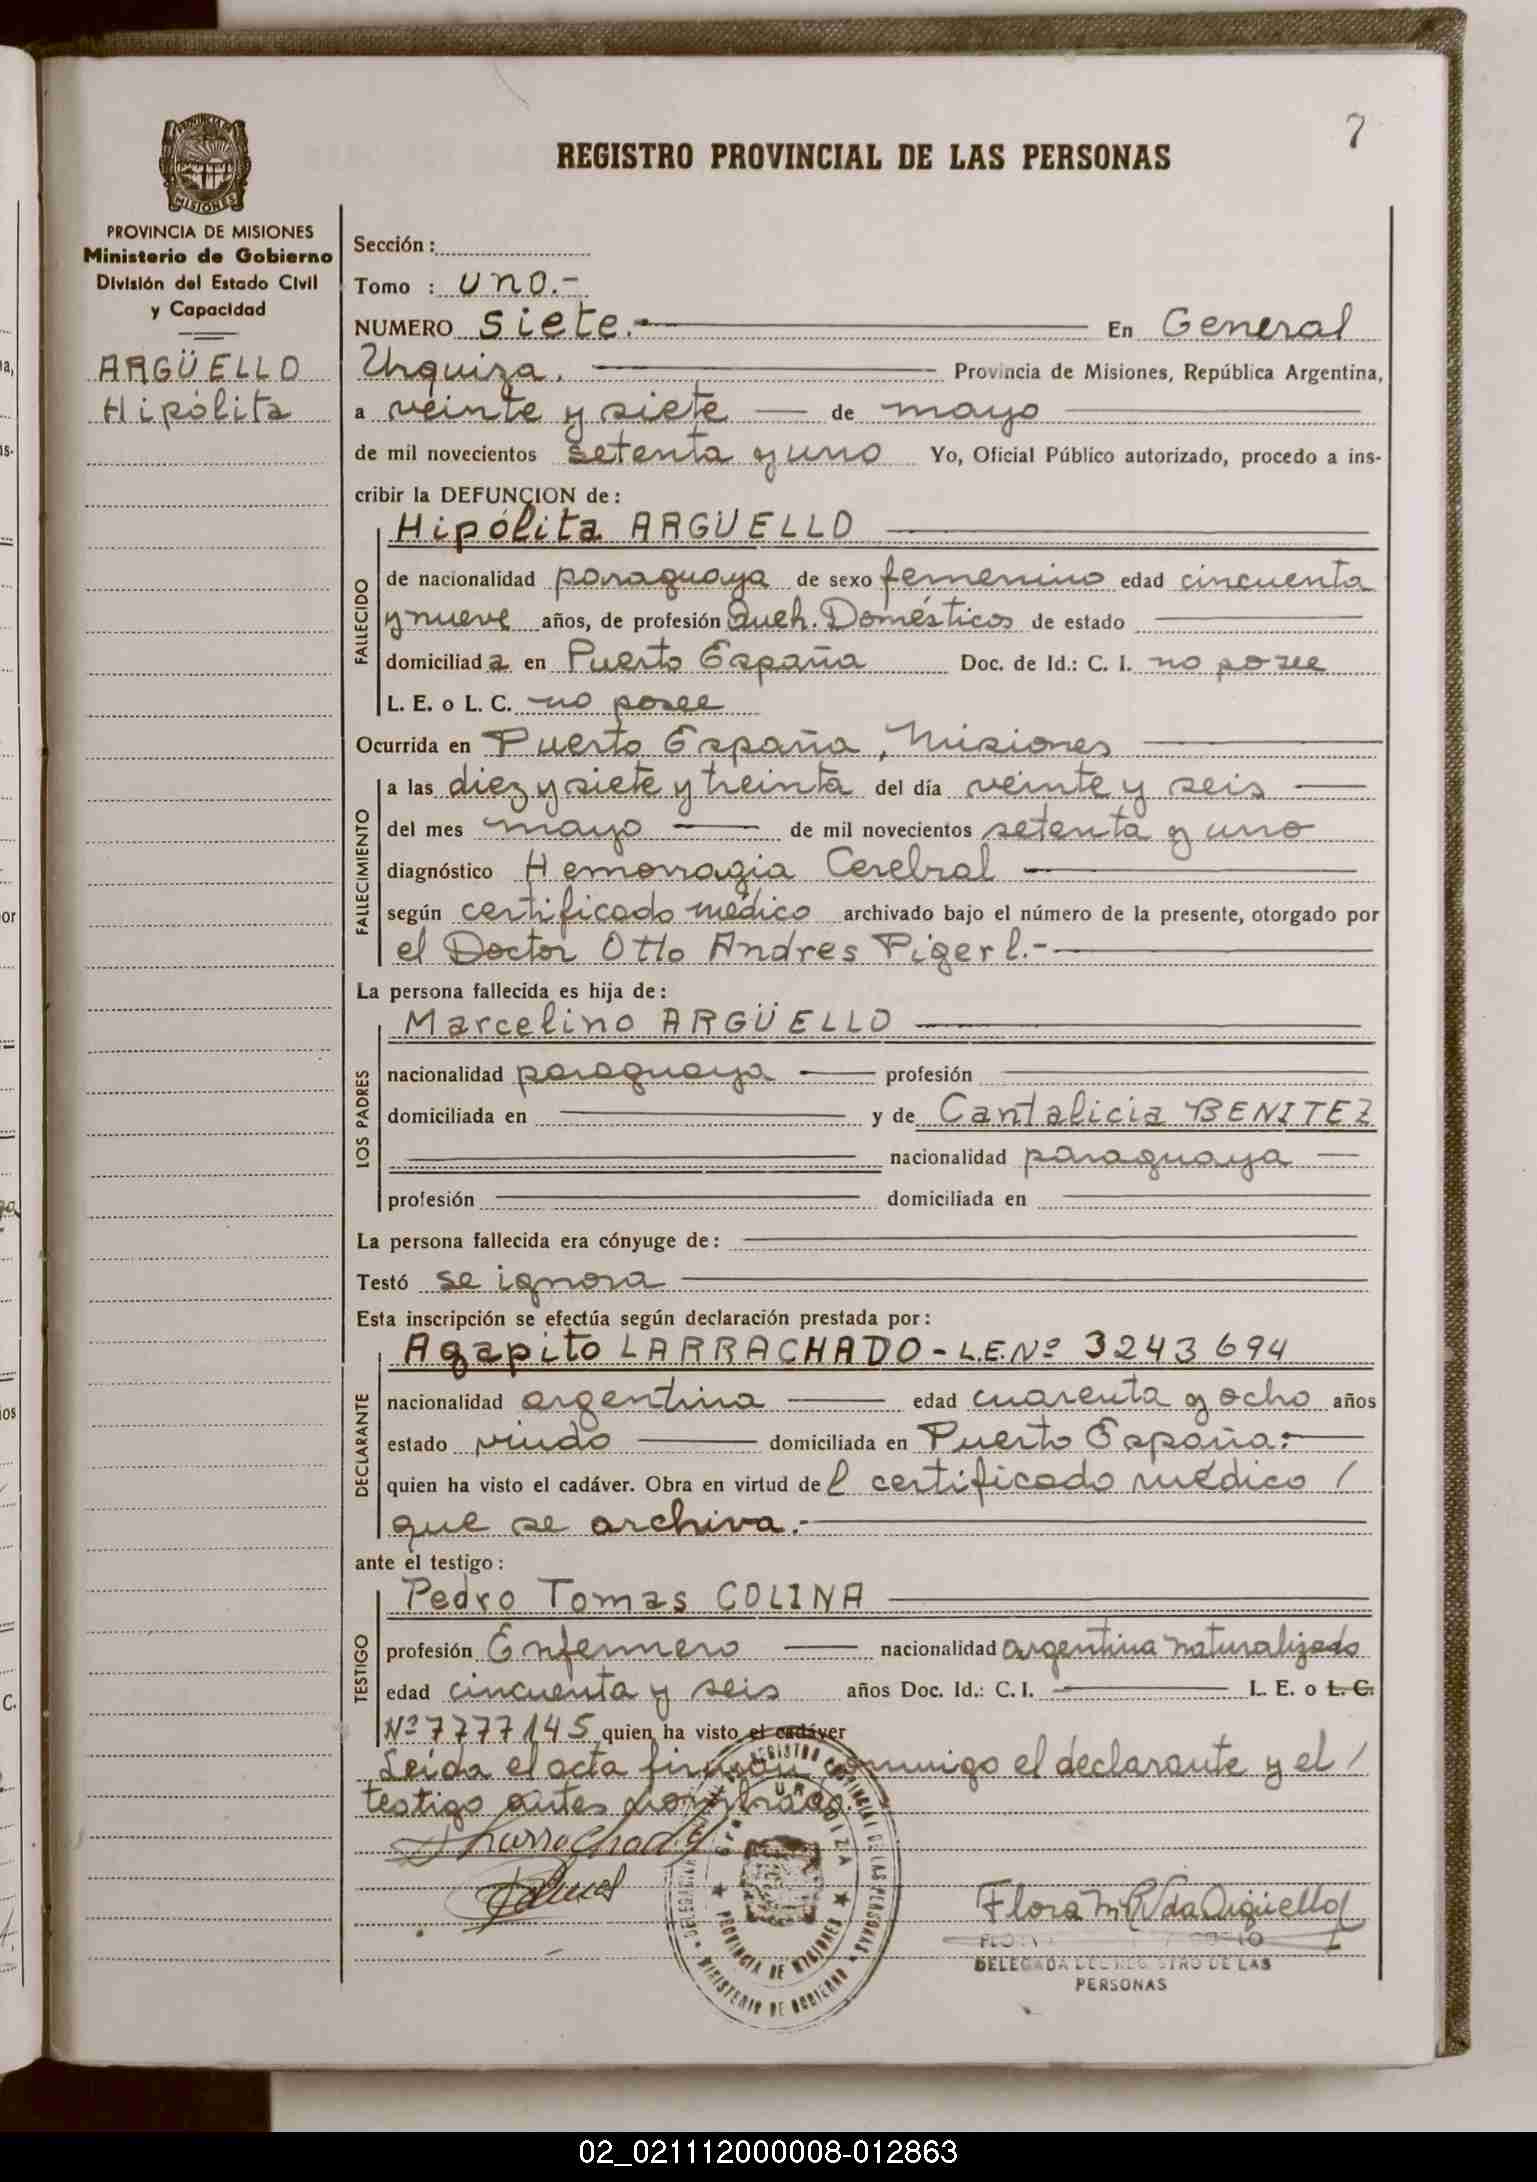 7
REGISTRO PROVINCIAL DE LAS PERSONAS
PROVINCIA DE MISIONES
Ministerio de Gobierno
División del Estado Civil
y Capacidad
ARGÜELLO
Hipólita
Sección :
Tomo : uno.-
NUMERO siete.- En General
Urquiza. Provincia de Misiones, República Argentina,
a veinte y siete — de mayo
de mil novecientos setenta y uno Yo, Oficial Público autorizado, procedo a ins-
cribir la DEFUNCION de :
Hipólita ARGÜELLO
FALLECIDO
de nacionalidad paraguaya de sexo femenino edad cincuenta
y nueve años, de profesión Queh. Domésticos de estado —
domiciliada en Puerto España Doc. de Id.: C. I. no posee
L. E. o L. C. no posee
Ocurrida en Puerto España, Misiones
FALLECIMIENTO
a las diez y siete y treinta del día veinte y seis —
del mes mayo — de mil novecientos setenta y uno
diagnóstico Hemorragia Cerebral —
según certificado médico archivado bajo el número de la presente, otorgado por
el Doctor Otto Andres Pigerl.-
La persona fallecida es hija de :
Marcelino ARGÜELLO
LOS PADRES
nacionalidad paraguaya — profesión —
domiciliada en — y de Cantalicia BENITEZ
— nacionalidad paraguaya —
profesión — domiciliada en —
La persona fallecida era cónyuge de : —
Testó se ignora —
Esta inscripción se efectúa según declaración prestada por :
Agapito LARRACHADO - L.E. Nº 3243694
DECLARANTE
nacionalidad argentina — edad cuarenta y ocho años
estado viudo — domiciliada en Puerto España.-
quien ha visto el cadáver. Obra en virtud del certificado médico /
que se archiva.-
ante el testigo :
Pedro Tomas COLINA
TESTIGO
profesión Enfermero — nacionalidad argentina naturalizado
edad cincuenta y seis años Doc. Id.: C. I. — L. E. o L. C.
Nº 7777145 quien ha visto el cadáver
Leída el acta firman conmigo el declarante y el /
testigo antes nombrado.
Larrachado
REGISTRO PROVINCIAL DE LAS PERSONAS
MINISTERIO DE GOBIERNO
DELEGACION
Gral. URQUIZA
PROVINCIA DE MISIONES
Flora M R Vda Argüello
DELEGADA DEL REGISTRO DE LAS
PERSONAS
02_021112000008-012863